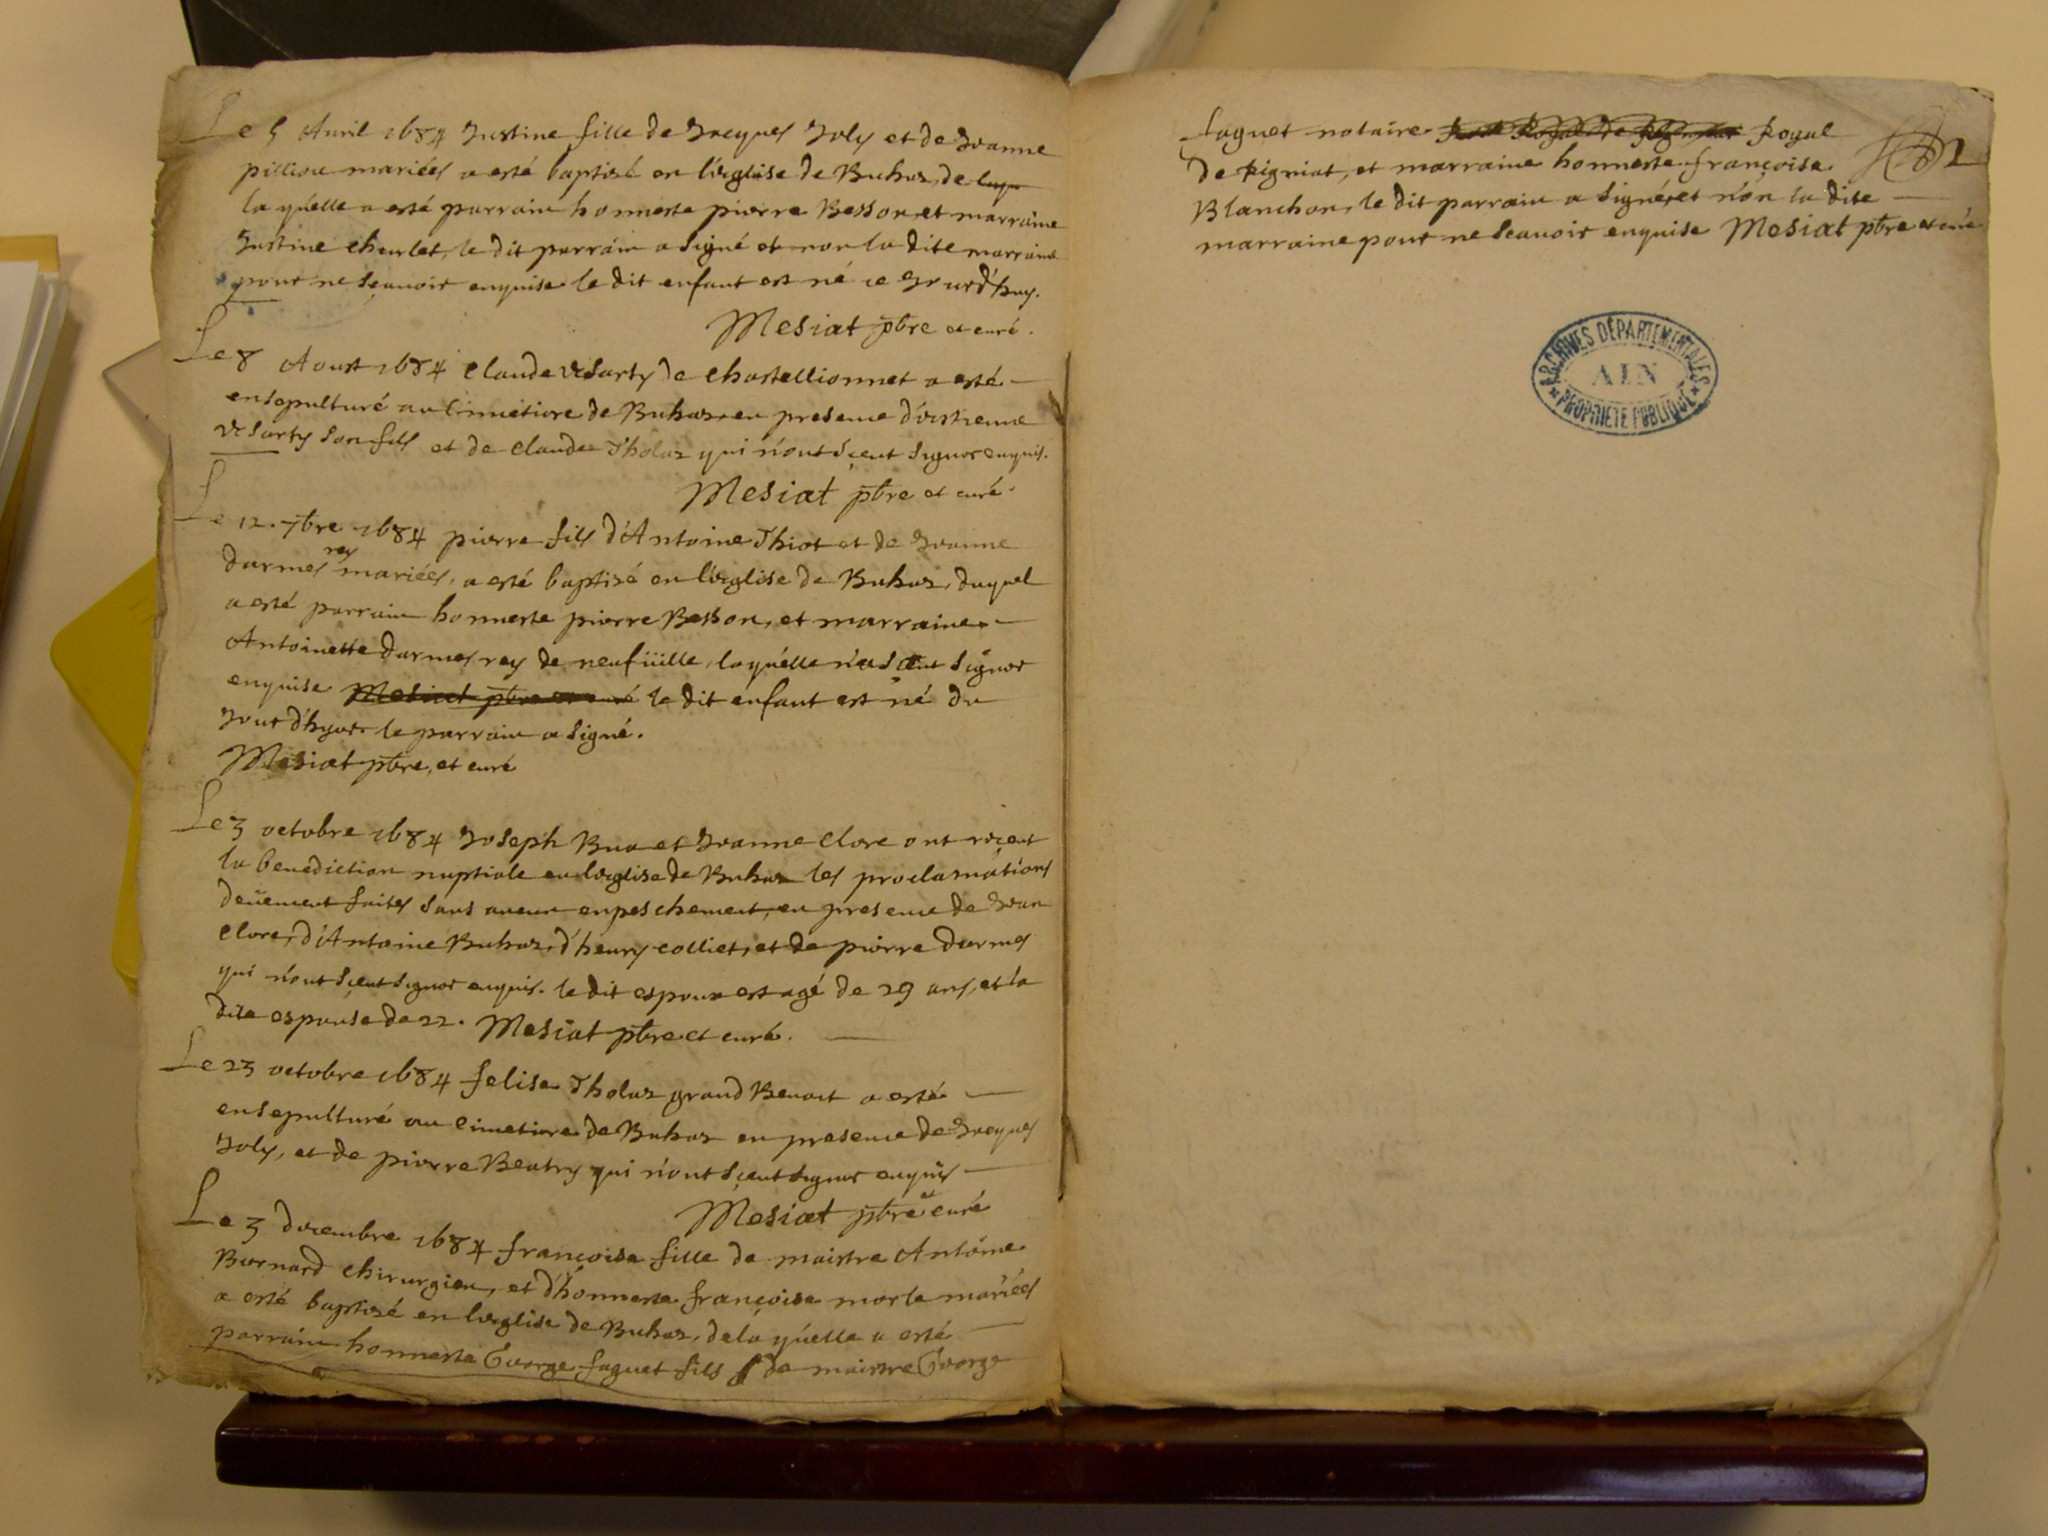 Le 5 Avril 1684 Justine fille de Jacques Joly et de Jeanne
mariées a esté baptisé en l'eglise de Buhas, de
la quelle a esté parrain honneste pierre Besson et marraine
Justine le dit parrain a signé et non la dite marraine
pour ne sçavoir enquise le dit enfant est né ce Jourd'huy.
Mesiat pbre et curé.
Le 8 Aoust 1684 Claude de Chastellionnet a esté
ensepulturé au cimetiere de Buhas, en presence d'estienne
son fils et de Claude Tholas qui n'ont sçeut signer enquis.
Mesiat pbre et curé.
Le 12. 7bre 1684 pierre fils d'Antoine Thiot et de Jeanne
darmes rey mariées, a esté baptisé en l'eglise de Buhas, duquel
a esté parrain honneste pierre Besson, et marraine
Antoinette darmes rey de neufuille, laquelle n'a sçeut signer
enquise Mesiat pbre et curé le dit enfant est né du
Jour d'hyer le parrain a signé.
Mesiat pbre, et curé
Le 3 octobre 1684 Joseph et Jeanne Clore ont reçeut
la benediction nuptiale en l'eglise de Buhas les proclamations
deüement faites sans aucun enpeschement, en presence de Jean
Clore, d'Antoine Buhas, d'henry colliet, et de pierre darmes
qui n'ont sçeut signer enquis. le dit espoux est agé de 29 ans, et la
dite espouse de 22. Mesiat pbre et curé.
Le 23 octobre 1684 felise Tholas grand Benoit a esté
ensepulturé au cimetiere de Buhas en presence de Jacques
Joly, et de pierre Beatry qui n'ont sçeut signer enquis
Mesiat pbre et curé
Le 3 decembre 1684 françoise fille de maistre Antoine
Bernard chirurgien, et d'honneste françoise morle mariées
a esté baptisé en l'eglise de Buhas, de la quelle a esté
parrain honneste George faguet fils de maistre George
faguet notaire Royal
de Rigniat, et marraine honneste françoise
Blanchon, le dit parrain a signé, et non la dite
marraine pour ne sçauoir enquise Mesiat pbre et curé
ARCHIVES DÉPARTEMENTALES
AIN
PROPRIÉTÉ PUBLIQUE